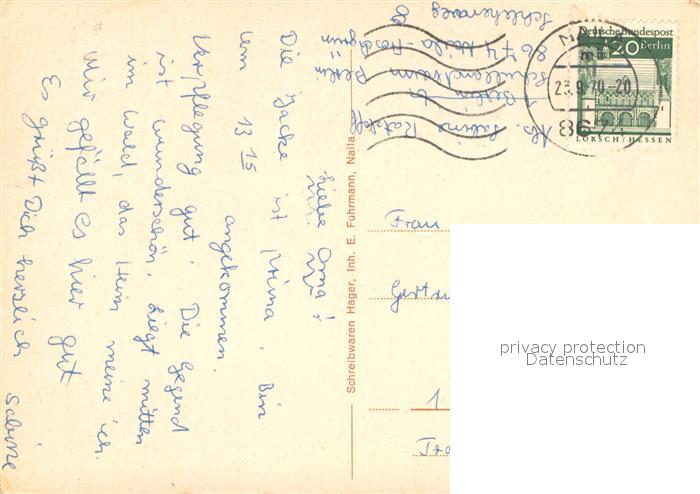 Liebe Oma!
Die Jacke ist prima. Bin
um 13 15 angekommen.
Verpflegung gut. Die Gegend
ist wunderschön. Liegt mitten
im Wald, das Heim meine ich.
Mir gefällt es hier gut
Es grüßt Dich herzlich Sabine
Schreibwaren Hager, Inh. E. Fuhrmann, Naila
Abs. Sabine
1 Berlin
Schullandheim Berlin
8674 Naila
Deutsche Bundespost
20 Berlin
LORSCH/HESSEN
NAILA
23.9.70.-20
8674
Frau
1
privacy protection
Datenschutz